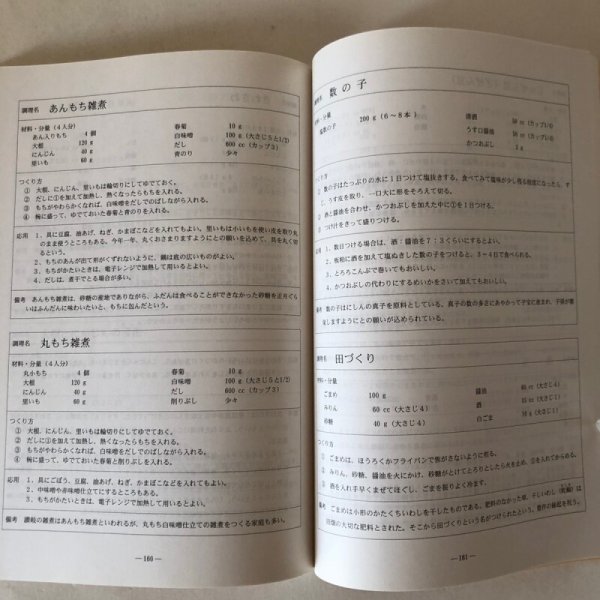 調理名 あんもち雑煮
材料・分量(4人分)
あん入りもち 4 個 春菊 10 g
大根 120 g 白味噌 100 g (大さじ5と1/2)
にんじん 40 g だし 600 cc (カップ3)
里いも 60 g 青のり 少々
つくり方
① 大根、にんじん、里いもは輪切りにしてゆでておく。
② だしに①を加えて加熱し、熱くなったらもちを入れる。
③ もちがやわらかくなれば、白味噌をだしでのばしながら入れる。
④ 椀に盛って、ゆでておいた春菊と青のりを入れる。
応用 1、具にごぼう、油あげ、ねぎ、かまぼこなどを入れてもよい。里いもは小いもを使い皮を取り丸
のまま使うところもある。今年一年、丸くおさまりますようにとの願いを込めて、具を丸く切
るという。
2、もちのあんが出て形がくずれないように、鍋は底の広いものがよい。
3、もちがかたいときは、電子レンジで加熱して用いるとよい。
4、だしは、煮干でとる場合が多い。
備考 あんもち雑煮は、砂糖の産地でありながら、ふだんは食べることができなかった砂糖を正月ぐら
いはふんだんに味わいたいと、もちに包んだという。
調理名 丸もち雑煮
材料・分量(4人分)
丸小もち 4 個 春菊 10 g
大根 120 g 白味噌 100 g (大さじ5と1/2)
にんじん 40 g だし 600 cc (カップ3)
里いも 60 g 削りぶし 少々
つくり方
① 大根、にんじん、里いもは輪切りにしてゆでておく。
② だしに①を加えて加熱し、熱くなったらもちを入れる。
③ もちがやわらかくなれば、白味噌をだしでのばしながら入れる。
④ 椀に盛って、ゆでておいた春菊と削りぶしを入れる。
応用 1、具にごぼう、豆腐、油あげ、ねぎ、かまぼこなどを入れてもよい。
2、中味噌や赤味噌仕立てにするところもある。
3、もちがかたいときは、電子レンジで加熱して用いるとよい。
備考 讃岐の雑煮はあんもち雑煮といわれるが、丸もち白味噌仕立ての雑煮をつくる家庭も多い。
—160—
調理名 数の子
材料・分量
塩数の子 200 g (6〜8本) 清酒
うす口醤油
かつおぶし
つくり方
① 数の子はたっぷりの水に1日つけて塩抜きする。食べてみて塩味が少し残る程度になったら、す
ぐ、うす皮を取り、一口大に形をそろえて切る。
② 酒と醤油を合わせ、かつおぶしを加えた中に①を1日つける。
③ つけ汁をきって盛りつける。
応用 1、数日つける場合は、酒:醤油を7:3くらいにするとよい。
2、板粕に酒を加えて塩ぬきした数の子をつけると、3〜4日で食べられる。
3、とろろこんぶで巻いてもおいしい。
4、かつおぶしの代わりにするめいかをさいて加えてもおいしい。
備考 数の子はにしんの真子を原料としている。真子の数の多さにあやかって子宝に恵まれ、子孫が繁
栄しますようにとの願いが込められている。
調理名 田づくり
材料・分量
ごまめ 100 g 醤油 60 cc (大さじ4)
みりん 60 cc (大さじ4) 酒 15 cc (大さじ1)
砂糖 40 g (大さじ4) 白ごま 10 g (大さじ1)
つくり方
① ごまめは、ほうろくかフライパンで焦がさないように煎る。
② みりん、砂糖、醤油を火にかけ、砂糖がとけてとろりとしたら火を止め、①を入れてからめる。
③ 酒を入れ手早くまぜてほぐし、ごまを振りよく冷ます。
備考 ごまめは小形のかたくちいわしを干したものである。肥料のなかった頃、干しいわし(乾鰯)は
田畑の大切な肥料とされた。そこから田づくりという名がつけられたという。豊作の縁起を祝う。
—161—